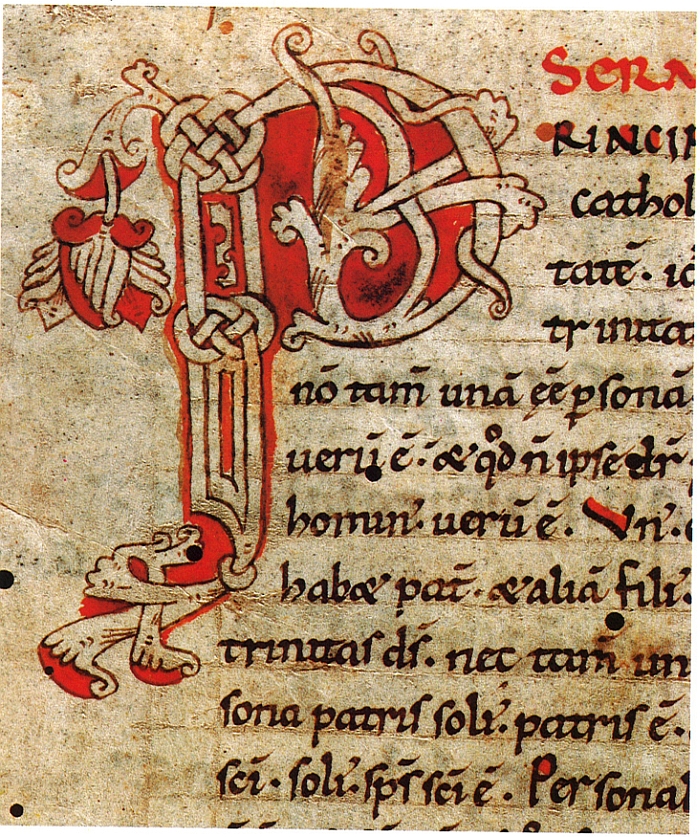 SERA
PRINCIP
cathol
tatē · id
trinita
nō tam̄ unā eē p̱sonā
uerū ē · & qd̊ n̄ ipse dr̄
homin̄ · uerū ē . Vn̄ ·
hab& pat̄ · & aliā filii ·
trinitas ds̄ . nec tam̄ un
sona patris soli · patris ē ·
sci̅ · soli · sp̄s sci̅ ē . Personal